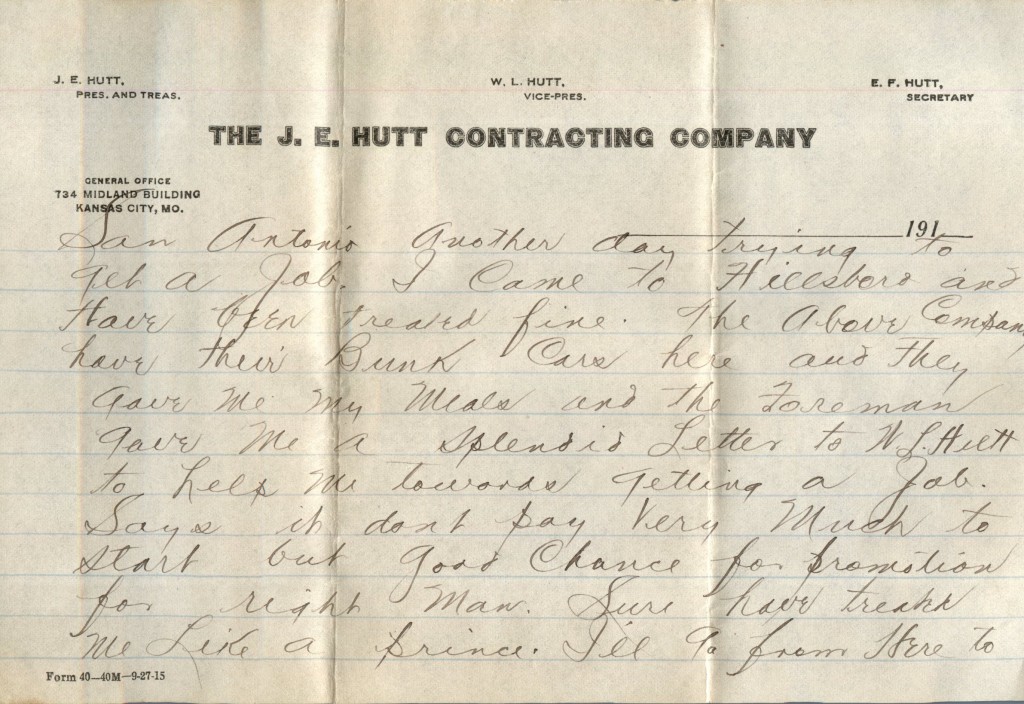 J. E. HUTT,
PRES. AND TREAS.
W. L. HUTT,
VICE-PRES.
E. F. HUTT,
SECRETARY
THE J. E. HUTT CONTRACTING COMPANY
GENERAL OFFICE
734 MIDLAND BUILDING
KANSAS CITY, MO.
191
San Antonio Another day trying to
get a Job. I Came to Hillsboro and
Have been treated fine. The Above Company
have their Bunk Cars here and they
gave Me My Meals and the Foreman
gave Me a splendid Letter to W. L. Hutt
to help Me towards getting a Job.
Says it dont pay Very Much to
start but good Chance for promotion
for right Man. Sure have treated
Me Like a prince. I'll go from Here to
Form 40—40M—9-27-15